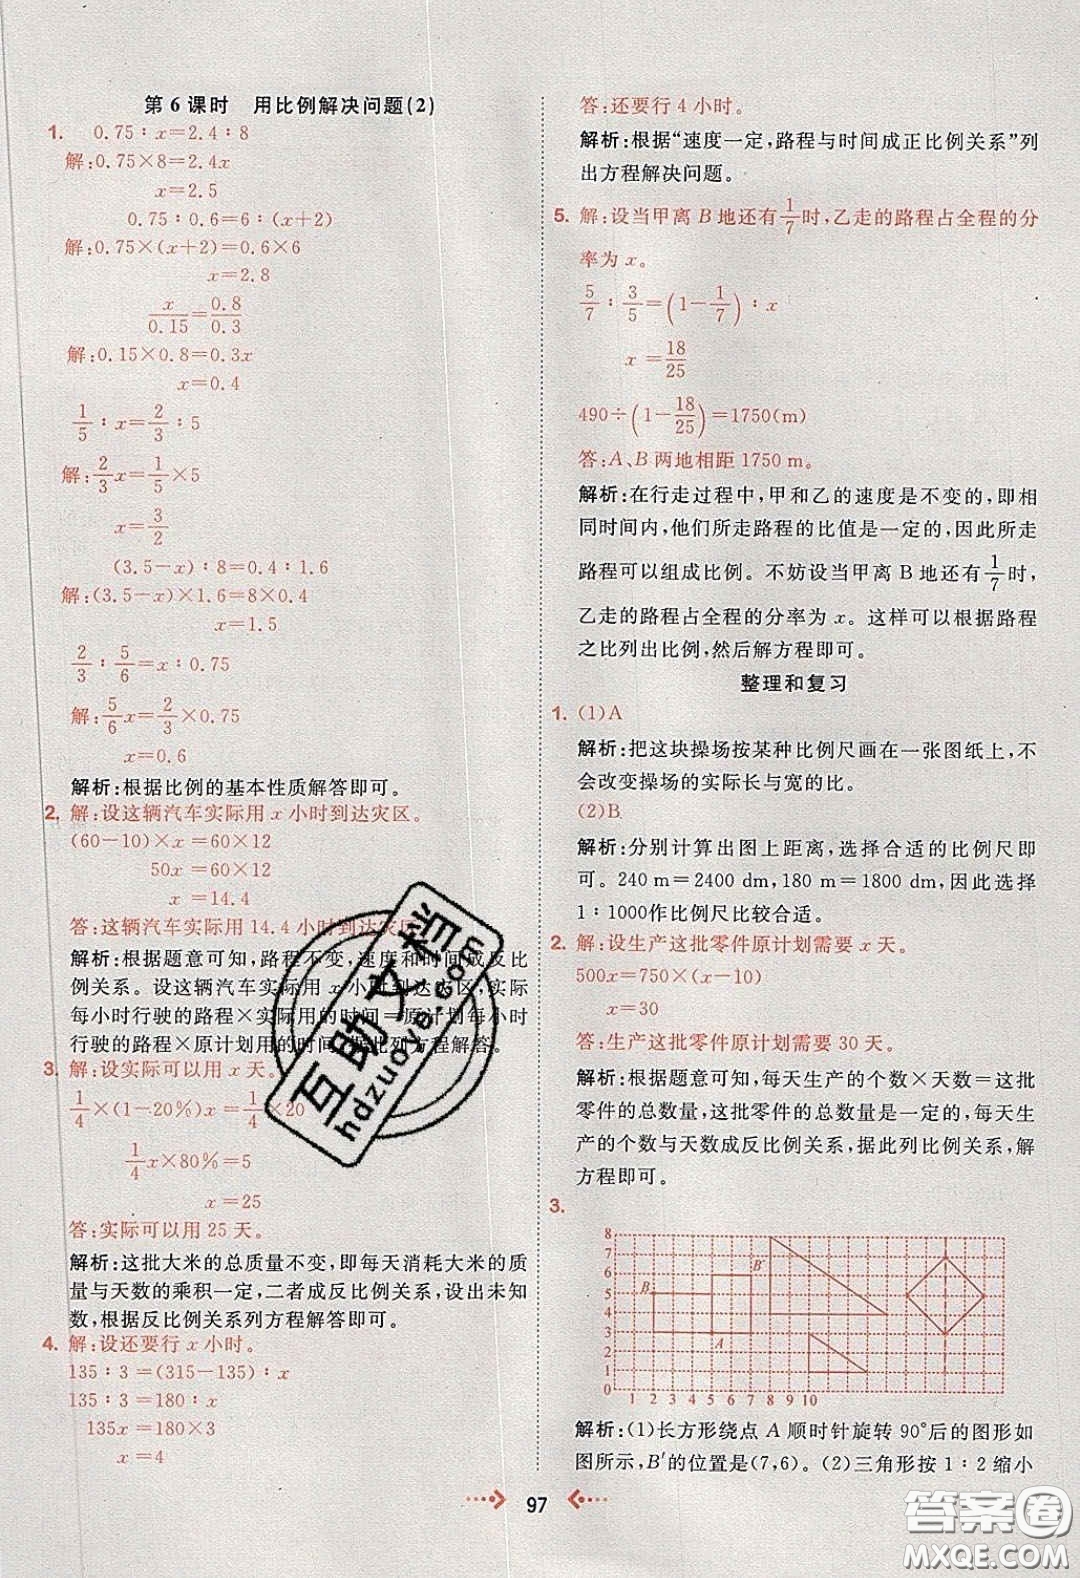 第6课时　用比例解决问题(2)
1. 0.75∶x=2.4∶8
解:0.75×8=2.4x
x=2.5
0.75∶0.6=6∶(x+2)
解:0.75×(x+2)=0.6×6
x=2.8
x/0.15=0.8/0.3
解:0.15×0.8=0.3x
x=0.4
1/5∶x=2/3∶5
解:2/3x=1/5×5
x=3/2
(3.5-x)∶8=0.4∶1.6
解:(3.5-x)×1.6=8×0.4
x=1.5
2/3∶5/6=x∶0.75
解:5/6x=2/3×0.75
x=0.6
解析:根据比例的基本性质解答即可。
2. 解:设这辆汽车实际用 x 小时到达灾区。
(60-10)×x=60×12
50x=60×12
x=14.4
答:这辆汽车实际用 14.4 小时到达灾区。
解析:根据题意可知,路程不变,速度和时间成反比
例关系。设这辆汽车实际用 x 小时到达灾区,实际
每小时行驶的路程×实际用的时间=原计划每小时
行驶的路程×原计划用的时间,据此列方程解答。
3. 解:设实际可以用 x 天。
1/4×(1-20%)x=1/4×20
1/4x×80%=5
x=25
答:实际可以用 25 天。
解析:这批大米的总质量不变,即每天消耗大米的质
量与天数的乘积一定,二者成反比例关系,设出未知
数,根据反比例关系列方程解答即可。
4. 解:设还要行 x 小时。
135∶3=(315-135)∶x
135∶3=180∶x
135x=180×3
x=4
答:还要行 4 小时。
解析:根据“速度一定,路程与时间成正比例关系”列
出方程解决问题。
5. 解:设当甲离 B 地还有1/7时,乙走的路程占全程的分
率为 x。
5/7∶3/5=(1-1/7)∶x
x=18/25
490÷(1-18/25)=1750(m)
答:A、B 两地相距 1750 m。
解析:在行走过程中,甲和乙的速度是不变的,即相
同时间内,他们所走路程的比值是一定的,因此所走
路程可以组成比例。不妨设当甲离 B 地还有1/7时,
乙走的路程占全程的分率为 x。这样可以根据路程
之比列出比例,然后解方程即可。
整理和复习
1. (1)A
解析:把这块操场按某种比例尺画在一张图纸上,不
会改变操场的实际长与宽的比。
(2)B
解析:分别计算出图上距离,选择合适的比例尺即
可。240 m=2400 dm,180 m=1800 dm,因此选择
1∶1000作比例尺比较合适。
2. 解:设生产这批零件原计划需要 x 天。
500x=750×(x-10)
x=30
答:生产这批零件原计划需要 30 天。
解析:根据题意可知,每天生产的个数×天数=这批
零件的总数量,这批零件的总数量是一定的,每天生
产的个数与天数成反比例关系,据此列比例关系,解
方程即可。
3.
8
7
6
5
4
3
2
1
0
1 2 3 4 5 6 7 8 9 10
B
B′
A
解析:(1)长方形绕点 A 顺时针旋转 90°后的图形如
图所示,B′的位置是(7,6)。(2)三角形按 1∶2 缩小
97
互助文档
hdzuoye.com
答案圈
MXQE.COM